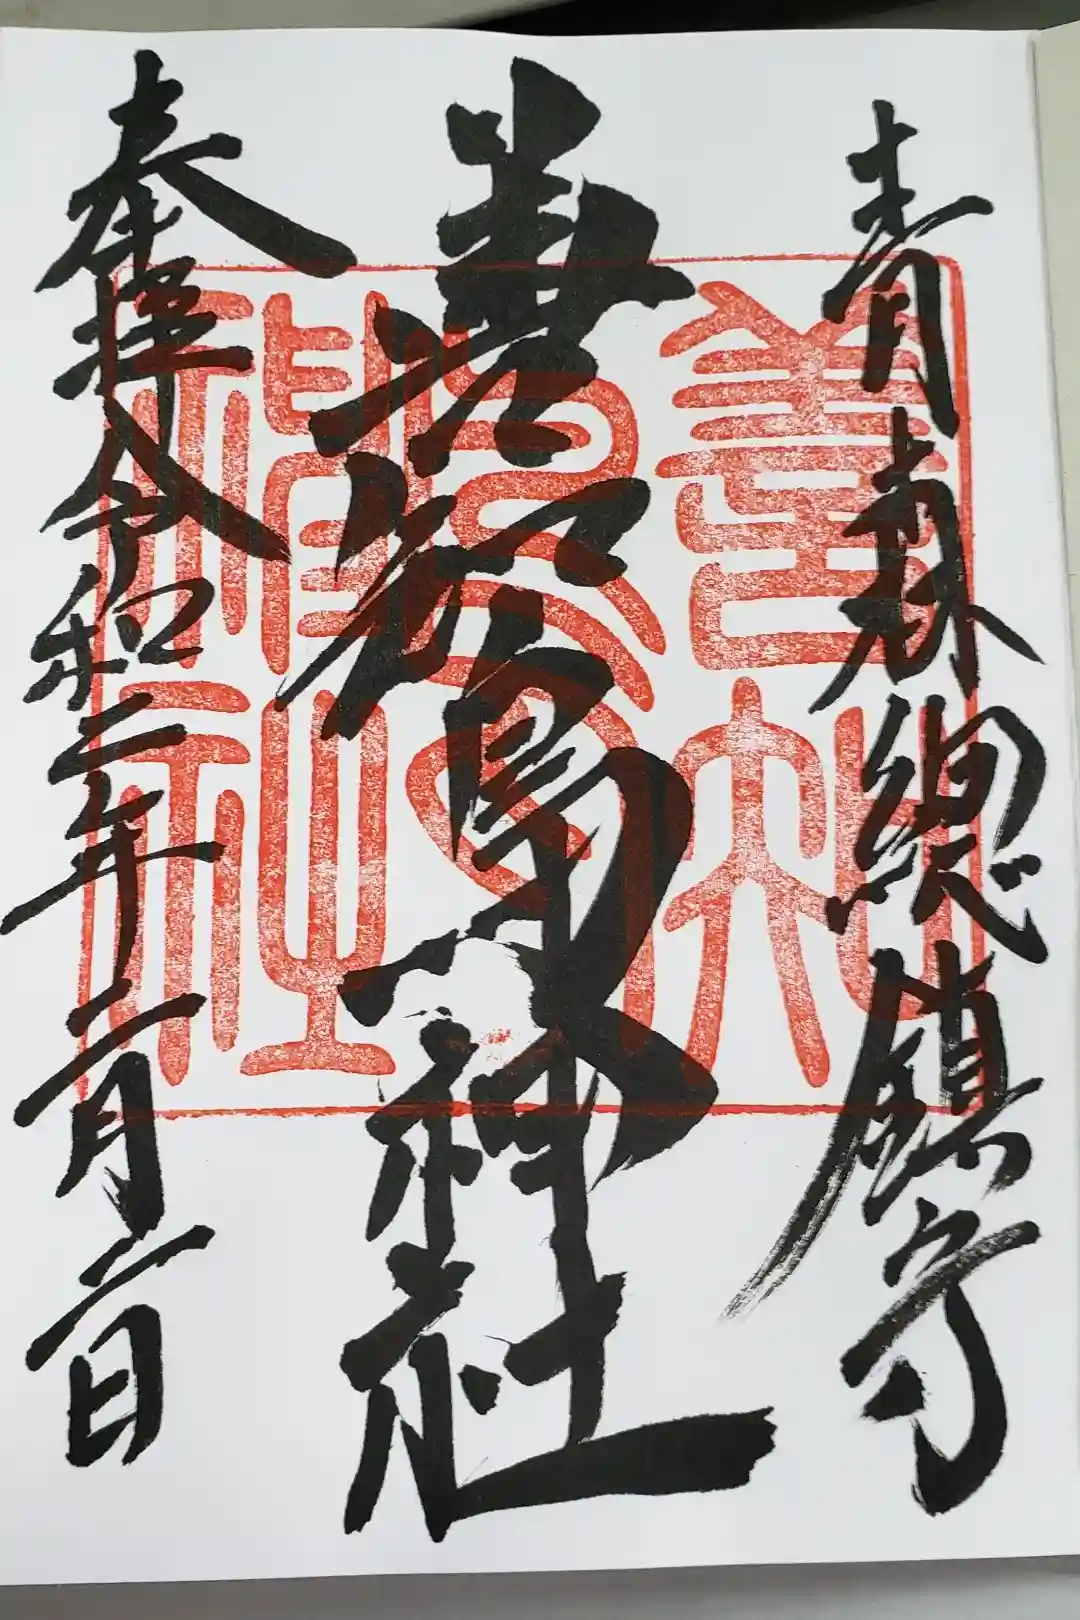 青森總鎮守
善知鳥神社
奉拝 令和二年二月二日
善知鳥神社